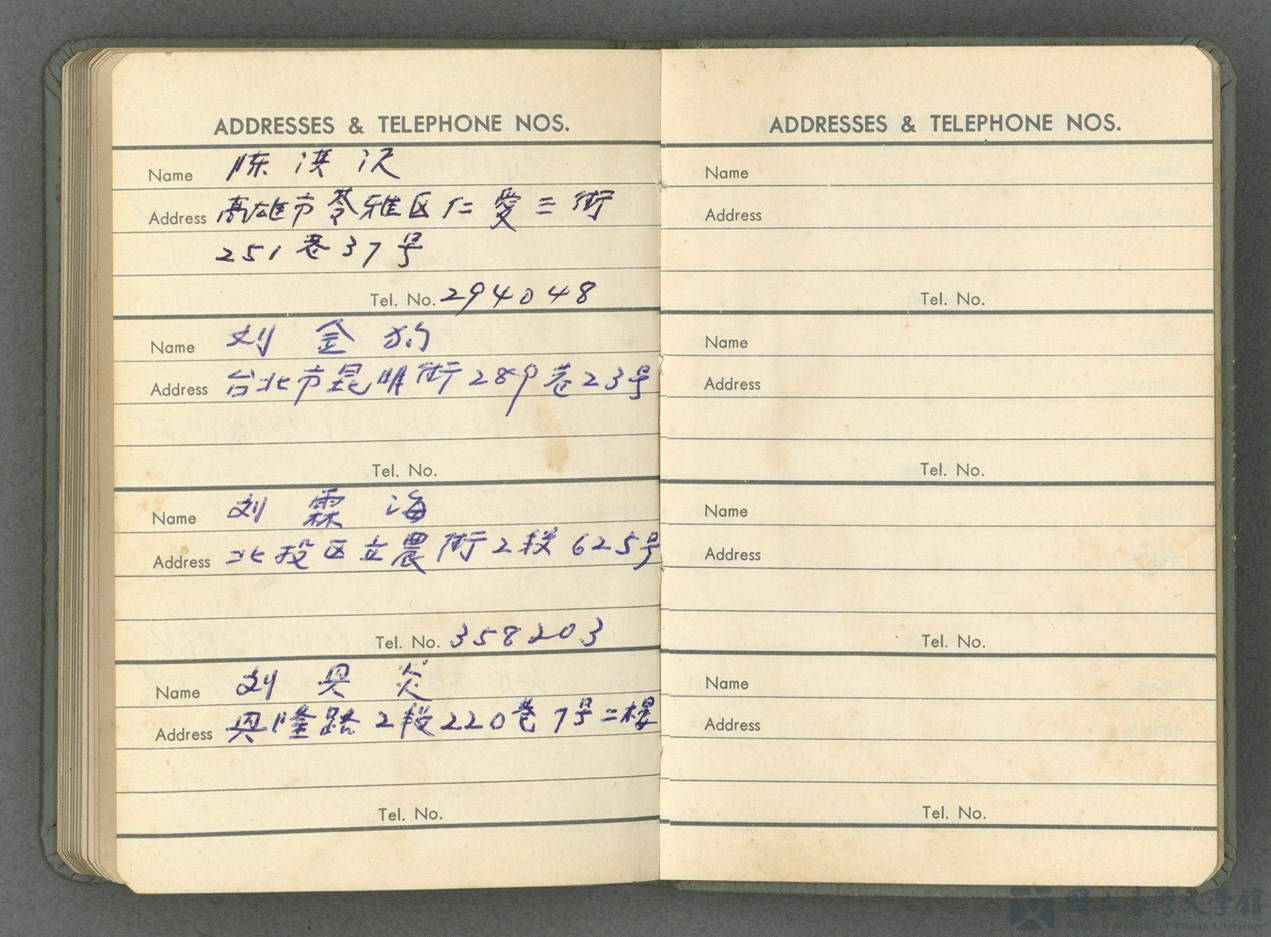 ADDRESSES & TELEPHONE NOS.
Name 陈 洪 沢
Address 高雄市苓雅区仁愛三街
251巷37号
Tel. No. 294048
Name 刘 金 狗
Address 台北市昆明街289巷23号
Tel. No.
Name 刘 霖 海
Address 北投区立農街2段625号
Tel. No. 358203
Name 刘 炎
Address 隆路2段220巷7号二楼
Tel. No.
ADDRESSES & TELEPHONE NOS.
Name
Address
Tel. No.
Name
Address
Tel. No.
Name
Address
Tel. No.
Name
Address
Tel. No.
國立臺灣文學館
National Museum of Taiwan Literature